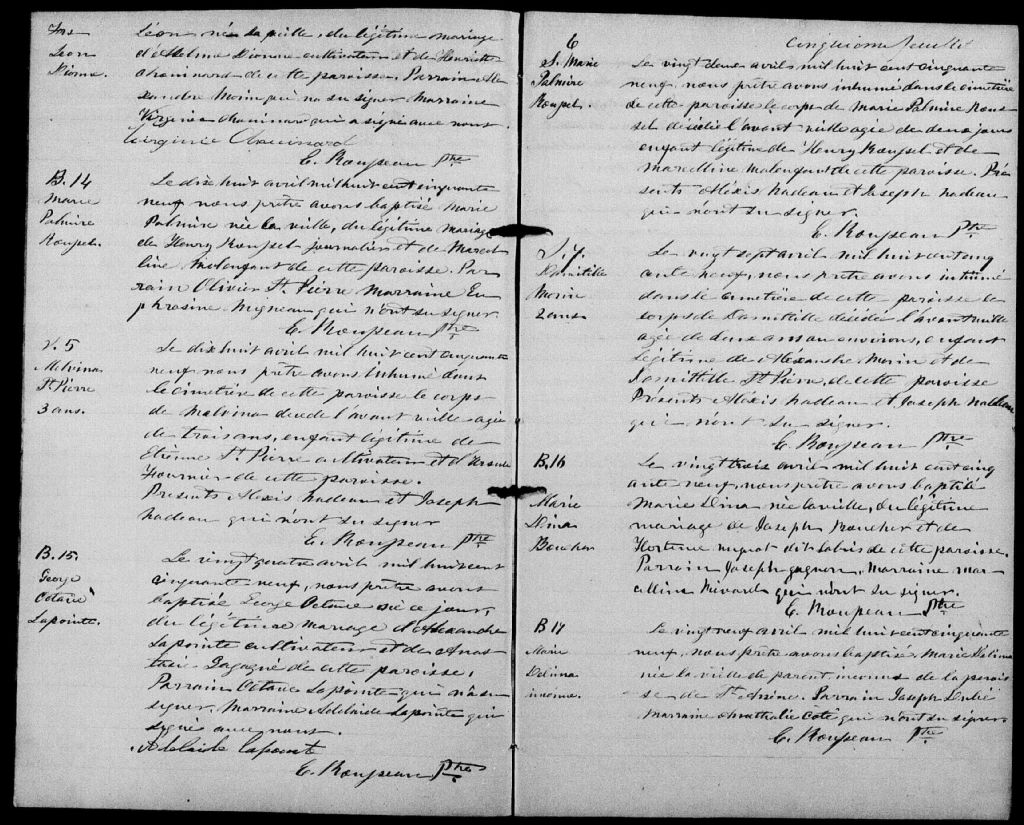 Jos
Leon
Dionne.
Léon né la veille, du légitime mariage
d'Anselme Dionne cultivateur et de Henriette
Chouinard de cette paroisse. Parrain Ale
xandre Morin qui n'a su signer Marraine
Virginie Chouinard qui a signé avec nous.
Virginie Chouinard
E. Roupeau Ptre
B.14
Marie
Palmire
Roupel.
Le dix huit avril mil huit cent cinquante
neuf nous prêtre avons baptisé Marie
Palmire née la veille, du légitime mariage
de Henry Roupel journalier et de Marcel
line Malenfant de cette paroisse. Par
rain Olivier St. Pierre Marraine Eu
phrosine Migneau qui n'ont su signer
E. Roupeau Ptre
5
Melvina
St Pierre
3 ans.
Le dix huit avril mil huit cent cinquante
neuf nous prêtre avons inhumé dans
le cimetière de cette paroisse le corps
de Malvina décédée l'avant veille agée
de trois ans, enfant légitime de
Etienne St. Pierre cultivateur et d'Ursule
Fournier de cette paroisse.
Présents Alexis nadeau et Joseph
nadeau qui n'ont su signer
E. Roupeau Ptre
B.15.
George
Octave
Lapointe.
Le vingt quatre avril mil huit cent
cinquante neuf, nous prêtre avons
baptisé George Octave né ce jour,
du légitime mariage d'Alexandre
Lapointe cultivateur et de Anas
tasie Gagagné de cette paroisse.
Parrain Octave Lapointe qui n'a su
signer, Marraine Adelaide Lapointe qui
signé avec nous.
Adelaide Lapointe
E. Roupeau Ptre
Cinquieme feuillet
6
S. Marie
Palmire
Roupel.
Le vingt deux avril mil huit cent cinquante
neuf, nous prêtre avons inhumé dans le cimetière
de cette paroisse le corps de Marie Palmire Rou
pel décédée l'avant veille agée de deux jours
enfant légitime de Henry Roupel et de
Marcelline Malenfant de cette paroisse. Pré
sents Alexis nadeau et Joseph nadeau
qui n'ont su signer.
E. Roupeau Ptre
S. 7.
Domitille
Morin
2 ans.
Le vingt sept avril mil huit cent cinq
ante neuf, nous prêtre avons inhumé
dans le cimetière de cette paroisse le
corps de Domithille décédée l'avant veille
agée de deux ans environs, enfant
légitime de Alexandre Morin et de
Domithille St Pierre de cette paroisse
Présents Alexis nadeau et Joseph nadeau
qui n'ont su signer.
E. Roupeau Ptre
B.16
Marie
Dina
Boucher
Le vingt trois avril mil huit cent cinq
ante neuf, nous prêtre avons baptisé
Marie Dina née la veille, du légitime
mariage de Joseph Boucher et de
Hortense mignot dit Labrie de cette paroisse.
Parrain Joseph gagnon, Marraine mar
celline Nivard qui n'ont su signer.
E. Roupeau Ptre
B 17
Marie
Delima
inconnu.
Le vingt neuf avril mil huit cent cinquante
neuf, nous prêtre avons baptisé Marie Delima
née la veille de parent inconnus de la parois
se de St Arsène. Parrain Joseph Dubé
Marraine Nathalie Coté qui n'ont su signer
E. Roupeau Ptre